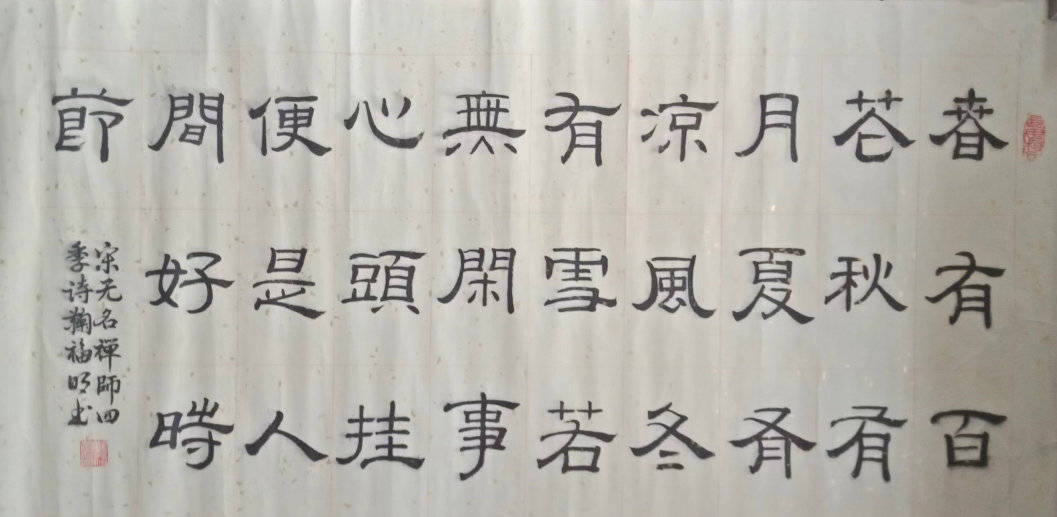 春有百
花秋有
月夏有
凉風冬
有雪若
無閑事
心頭挂
便是人
間好時
節
宋无名禪師四
季诗鞠福明书